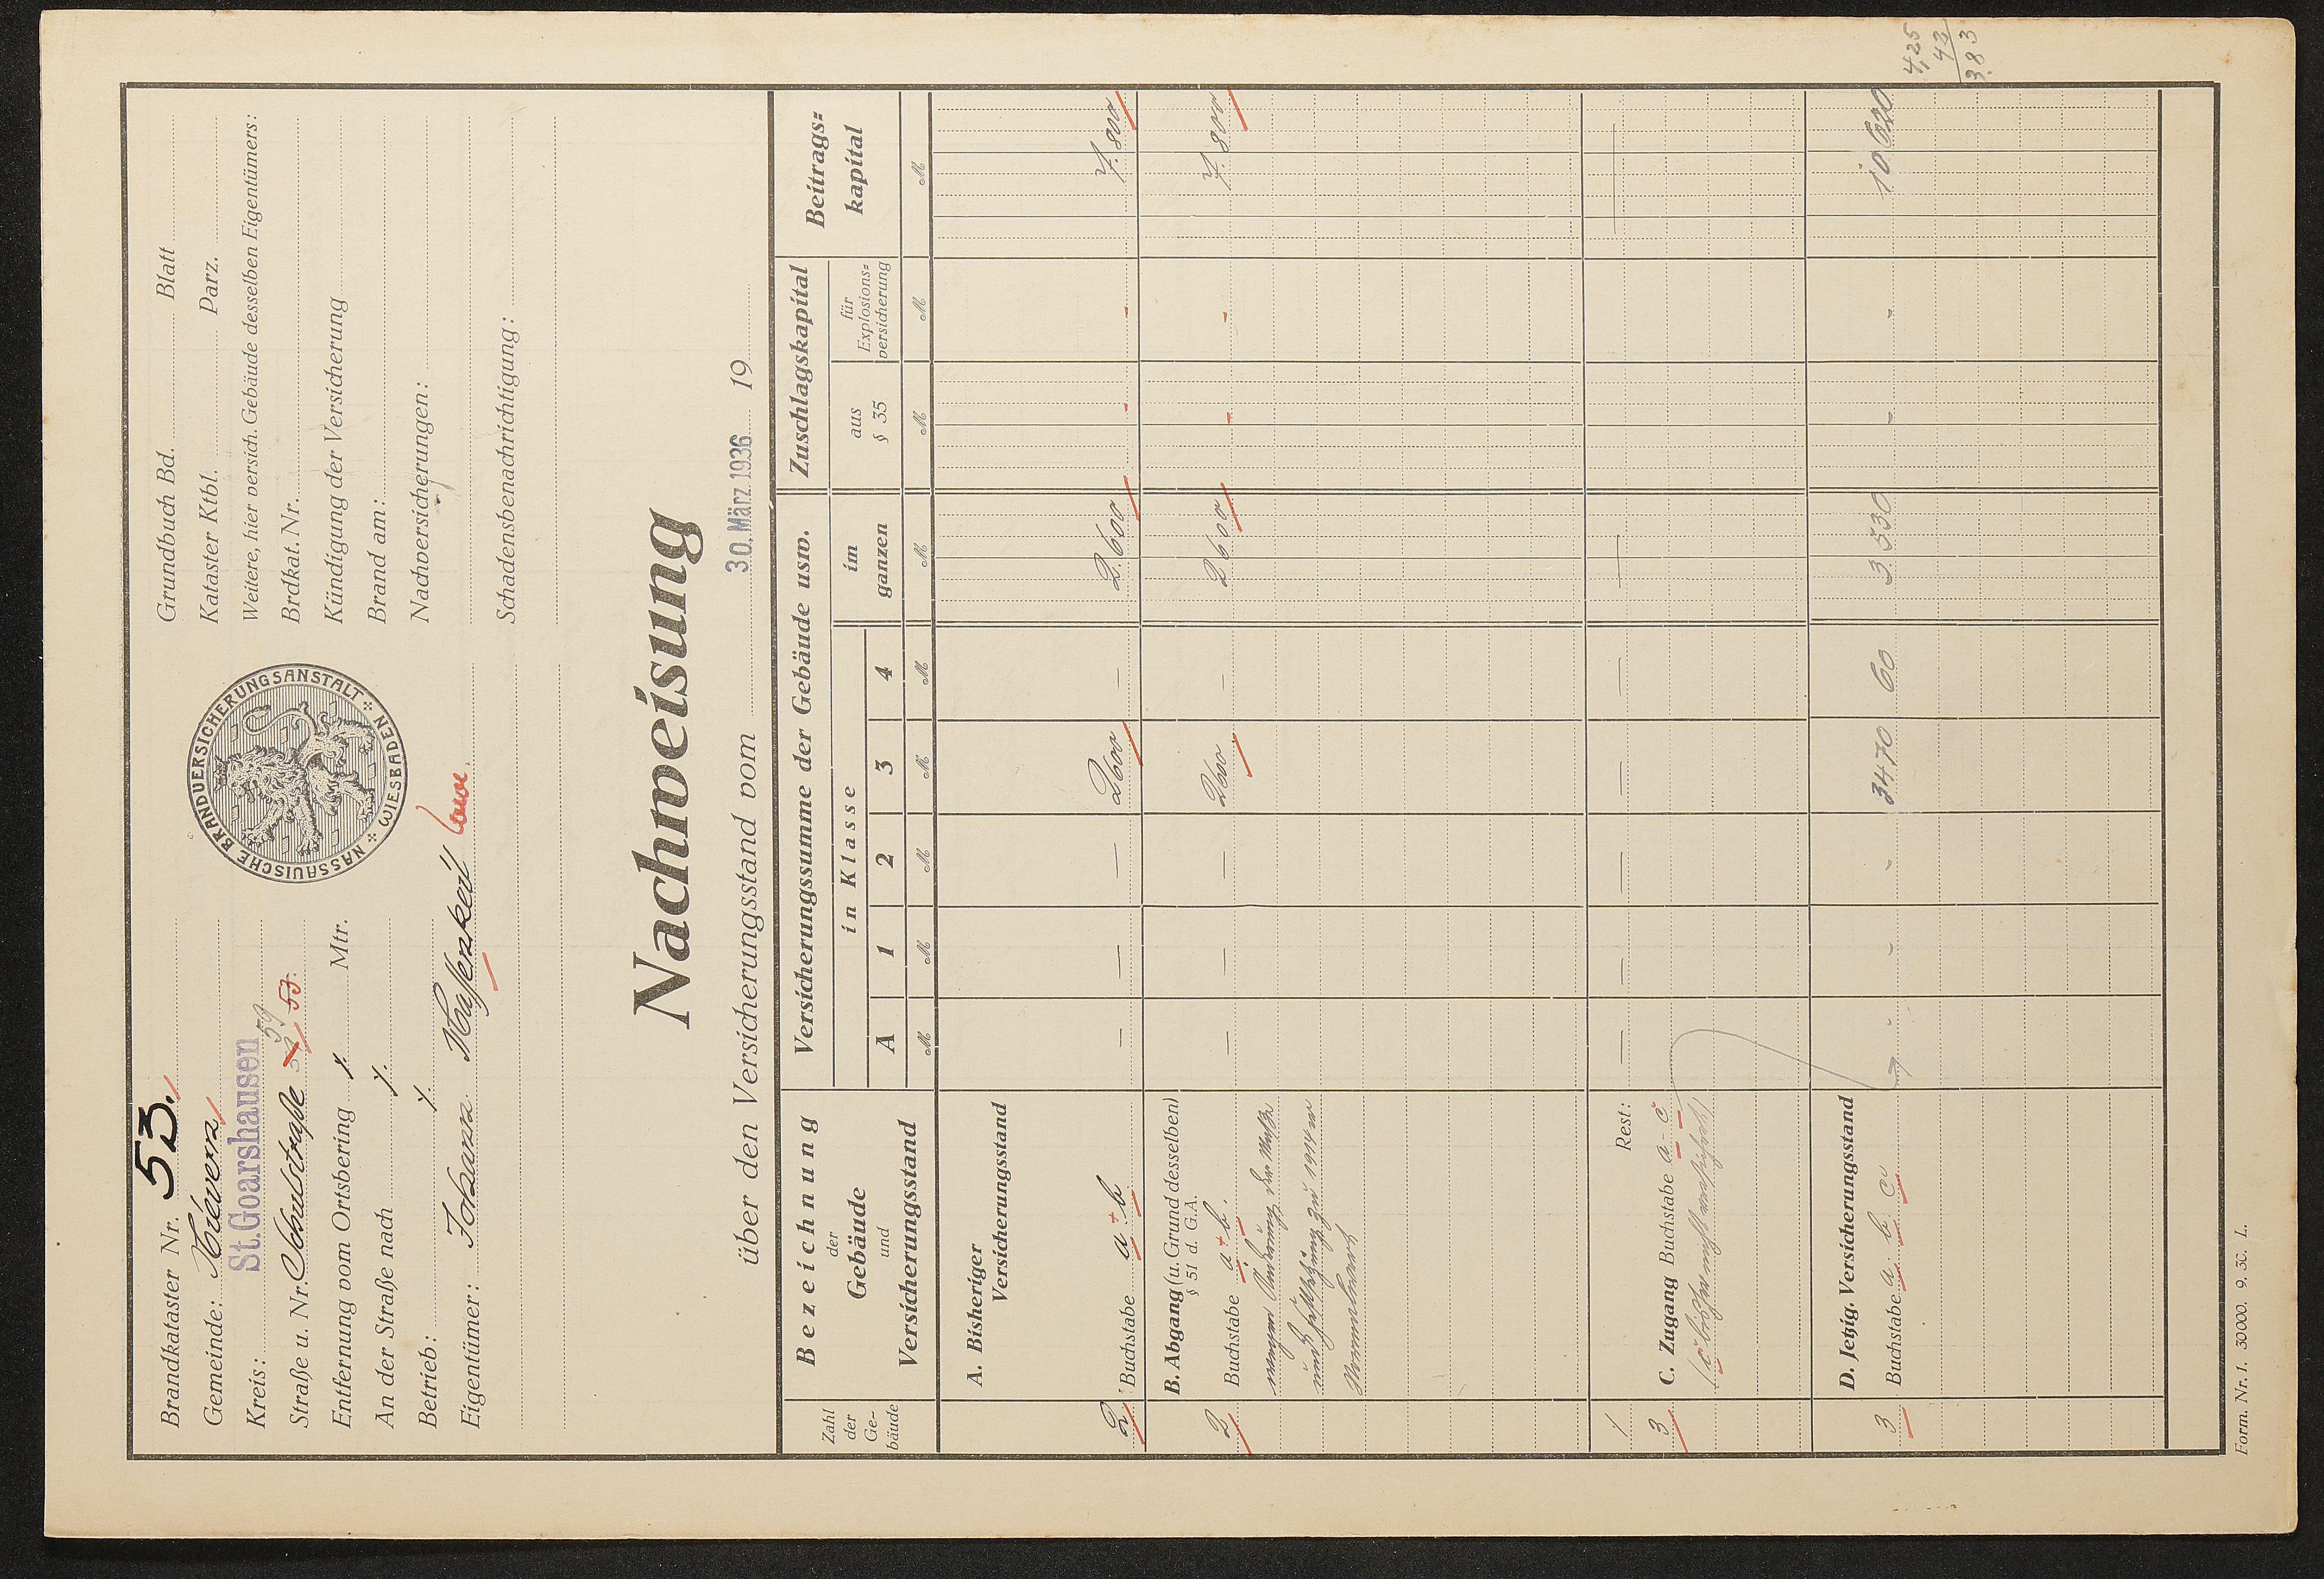 Brandkataster Nr. 53.
Gemeinde: Kievern
Kreis: St. Goarshausen
Straße u. Nr. Schulstraße 59 53.
Entfernung vom Ortsbering ./. Mtr.
An der Straße nach ./.
Betrieb: ./.
Eigentümer: Johann
NASSAUISCHE BRANDVERSICHERUNGSANSTALT
WIESBADEN
Grundbuch Bd. Blatt
Kataster Ktbl. Parz.
Weitere, hier versich. Gebäude desselben Eigentümers:
Brdkat. Nr.
Kündigung der Versicherung
Brand am:
Nachversicherungen:
Schadensbenachrichtigung:
Nachweisung
über den Versicherungsstand vom 30. März 1936 19
Zahl der Ge-bäude
Bezeichnung der Gebäude und Versicherungsstand
Versicherungssumme der Gebäude usw.
in Klasse
A 1 2 3 4
im ganzen
Zuschlagskapital
aus § 35
für Explosions-versicherung
Beitrags-kapital
M M M M M M M M M
A. Bisheriger Versicherungsstand
2 Buchstabe a + b — — — 2600 — 2.600 - - 7.800
B. Abgang (u. Grund desselben)
§ 51 d. G.A.
2 Buchstabe a + b. — — — 2600 — 2600 - - 7.800
wegen Änderung der
und zu 1914er
1 Rest: — — — — — — —
3 C. Zugang Buchstabe a - c
D. Jetzig. Versicherungsstand
3 Buchstabe a. b. c - - - 3470 60 3.530 - - 10 620
4,25
43
3,83
Form. Nr. 1. 30 000. 9. 30. L.